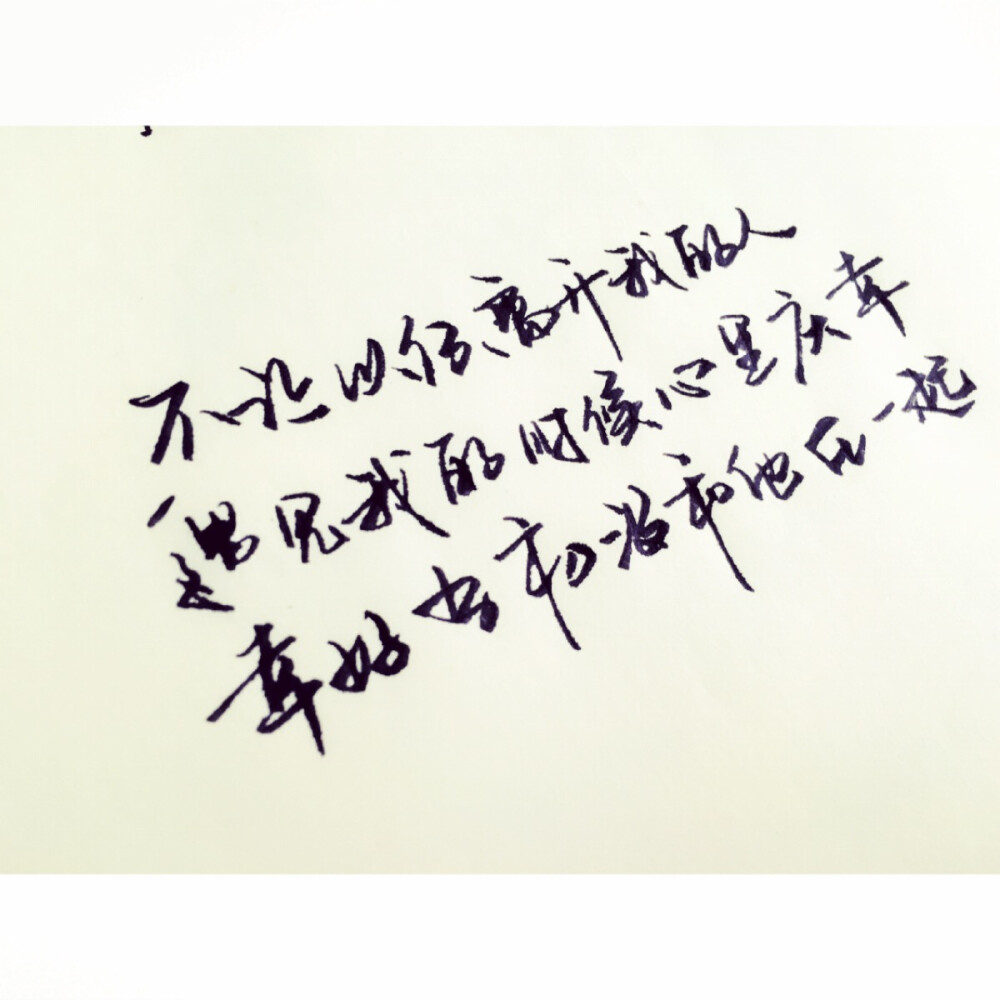 不让以后离开我的人
遇见我的时候心里庆幸
幸好当初没和他在一起